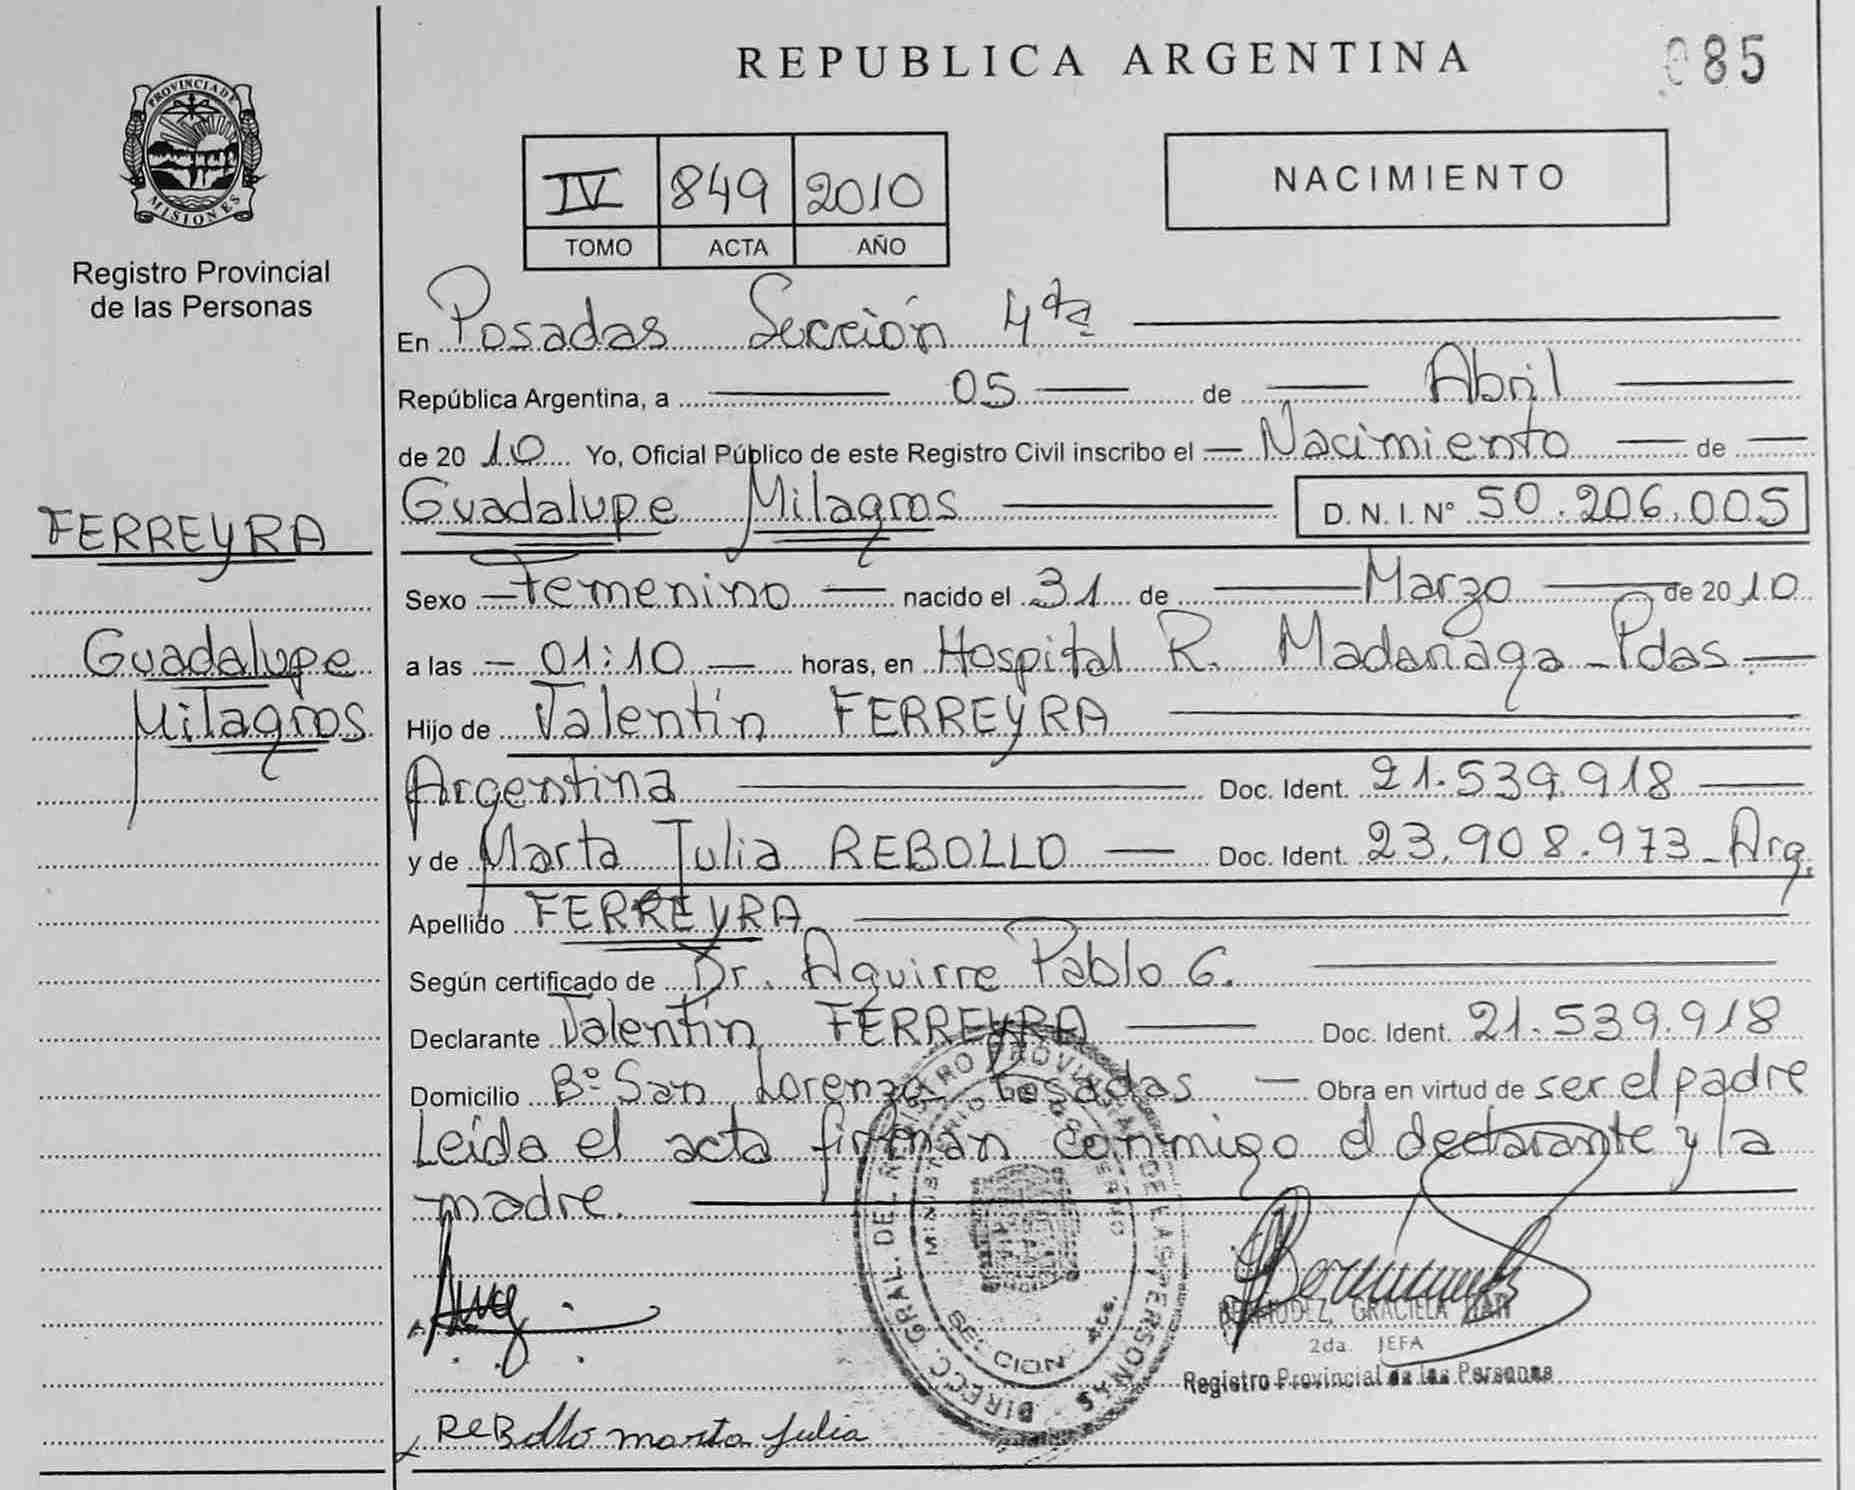 REPUBLICA ARGENTINA
085
PROVINCIA DE
MISIONES
Registro Provincial
de las Personas
IV 849 2010
TOMO ACTA AÑO
NACIMIENTO
En Posadas Sección 4ta
República Argentina, a 05 de Abril
de 2010 Yo, Oficial Público de este Registro Civil inscribo el Nacimiento de
Guadalupe Milagros D.N.I. Nº 50.206.005
FERREYRA
Guadalupe
Milagros
Sexo Femenino nacido el 31 de Marzo de 2010
a las 01:10 horas, en Hospital R. Madariaga - Pdas
Hijo de Valentín FERREYRA
Argentina Doc. Ident. 21.539.918
y de Marta Julia REBOLLO Doc. Ident. 23.908.973 - Arg.
Apellido FERREYRA
Según certificado de Dr. Aguirre Pablo G.
Declarante Valentín FERREYRA Doc. Ident. 21.539.918
Domicilio Bº San Lorenzo Posadas Obra en virtud de ser el padre
Leída el acta firman conmigo el declarante y la
madre.
DIRECC. GRAL. DEL REGISTRO PROVINCIAL DE LAS PERSONAS
MINISTERIO DE GOBIERNO
SECCION 4ta.
BERMUDEZ, GRACIELA
2da. JEFA
Registro Provincial de las Personas
ReBollo marta julia